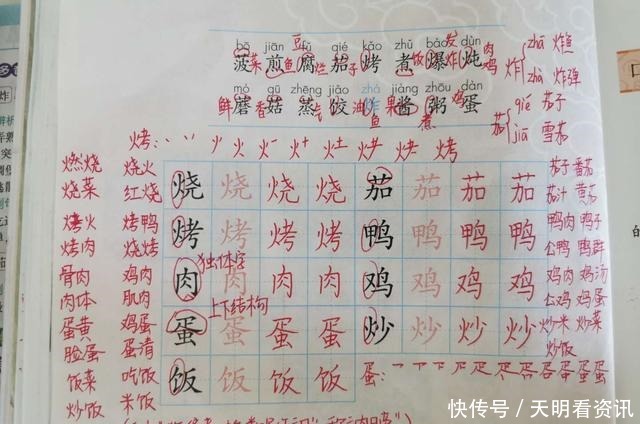 bō jiān fǔ qié kǎo zhǔ bào dùn
菠菜 煎鱼 豆腐 茄子 烤 煮饭 爆炸 炖鸡
炸 zhá 炸鱼
zhà 炸弹
mó gū zhēng jiǎo zhá jiàng zhōu dàn
鲜蘑 香菇 蒸 饺 炸鱼 果酱 煮粥 鸡蛋
茄 qié 茄子
jiā 雪茄
烤:
燃烧 烧火 烧 烧 烧 烧 茄 茄 茄 茄 茄子 番茄
烧菜 红烧 茄汁
烤火 烤鸭 烤 烤 烤 烤 鸭 鸭 鸭 鸭 鸭肉 鸭子
烤肉 烧烤 公鸭 鸭群
骨肉 鸡肉 肉 独体字 肉 肉 肉 鸡 鸡 鸡 鸡 鸡肉 鸡汤
肉体 肌肉 上下结构 公鸡 鸡蛋
蛋黄 鸡蛋 蛋 蛋 蛋 蛋 炒 炒 炒 炒 炒米 炒菜
脸蛋 蛋清 炒饭
饭菜 吃饭 饭 饭 饭 饭 蛋:
炒饭 米饭
快传号/天明看资讯